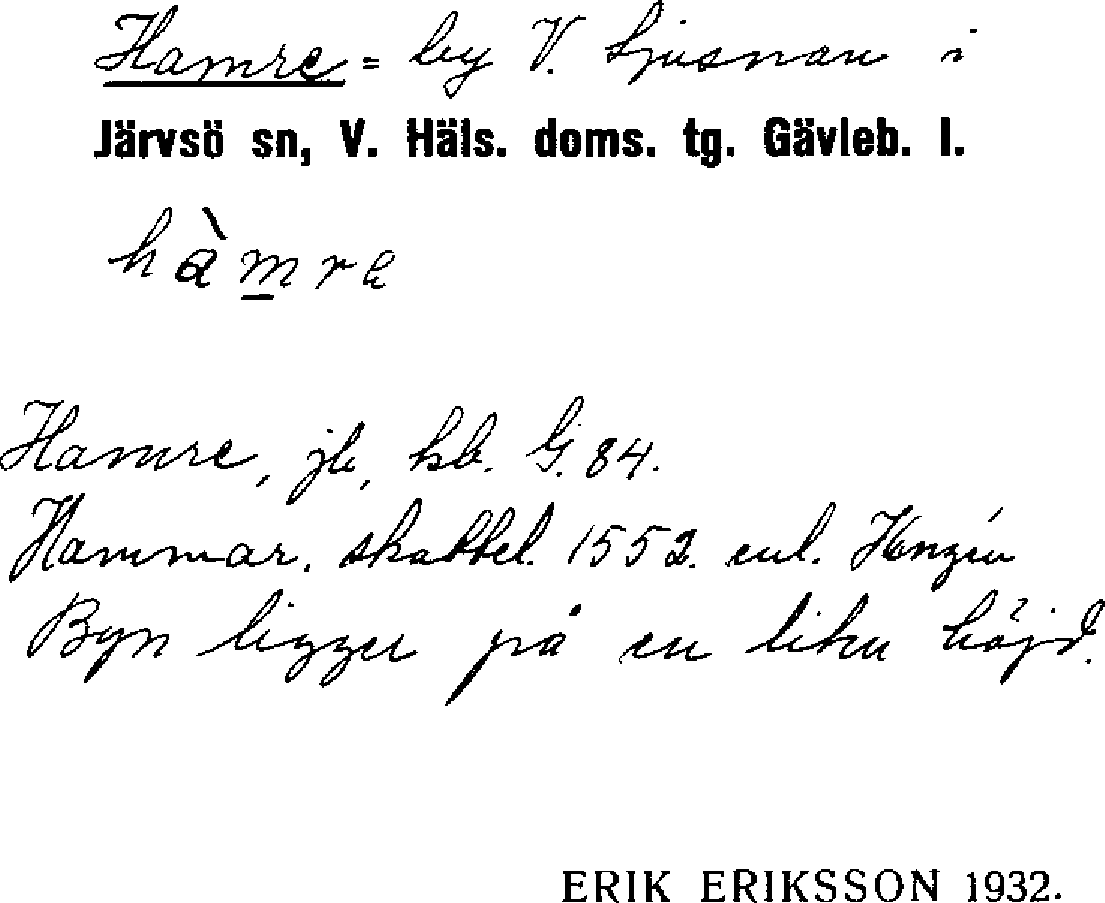 Hamre = by V. Ljusnan i
Järvsö sn, V. Häls. doms. tg. Gävleb. l.
hàmre
Hamre, jb, hb. G. 84.
Hammar. skattel. 1552. enl.
Byn ligger på en liten höjd.
ERIK ERIKSSON 1932.